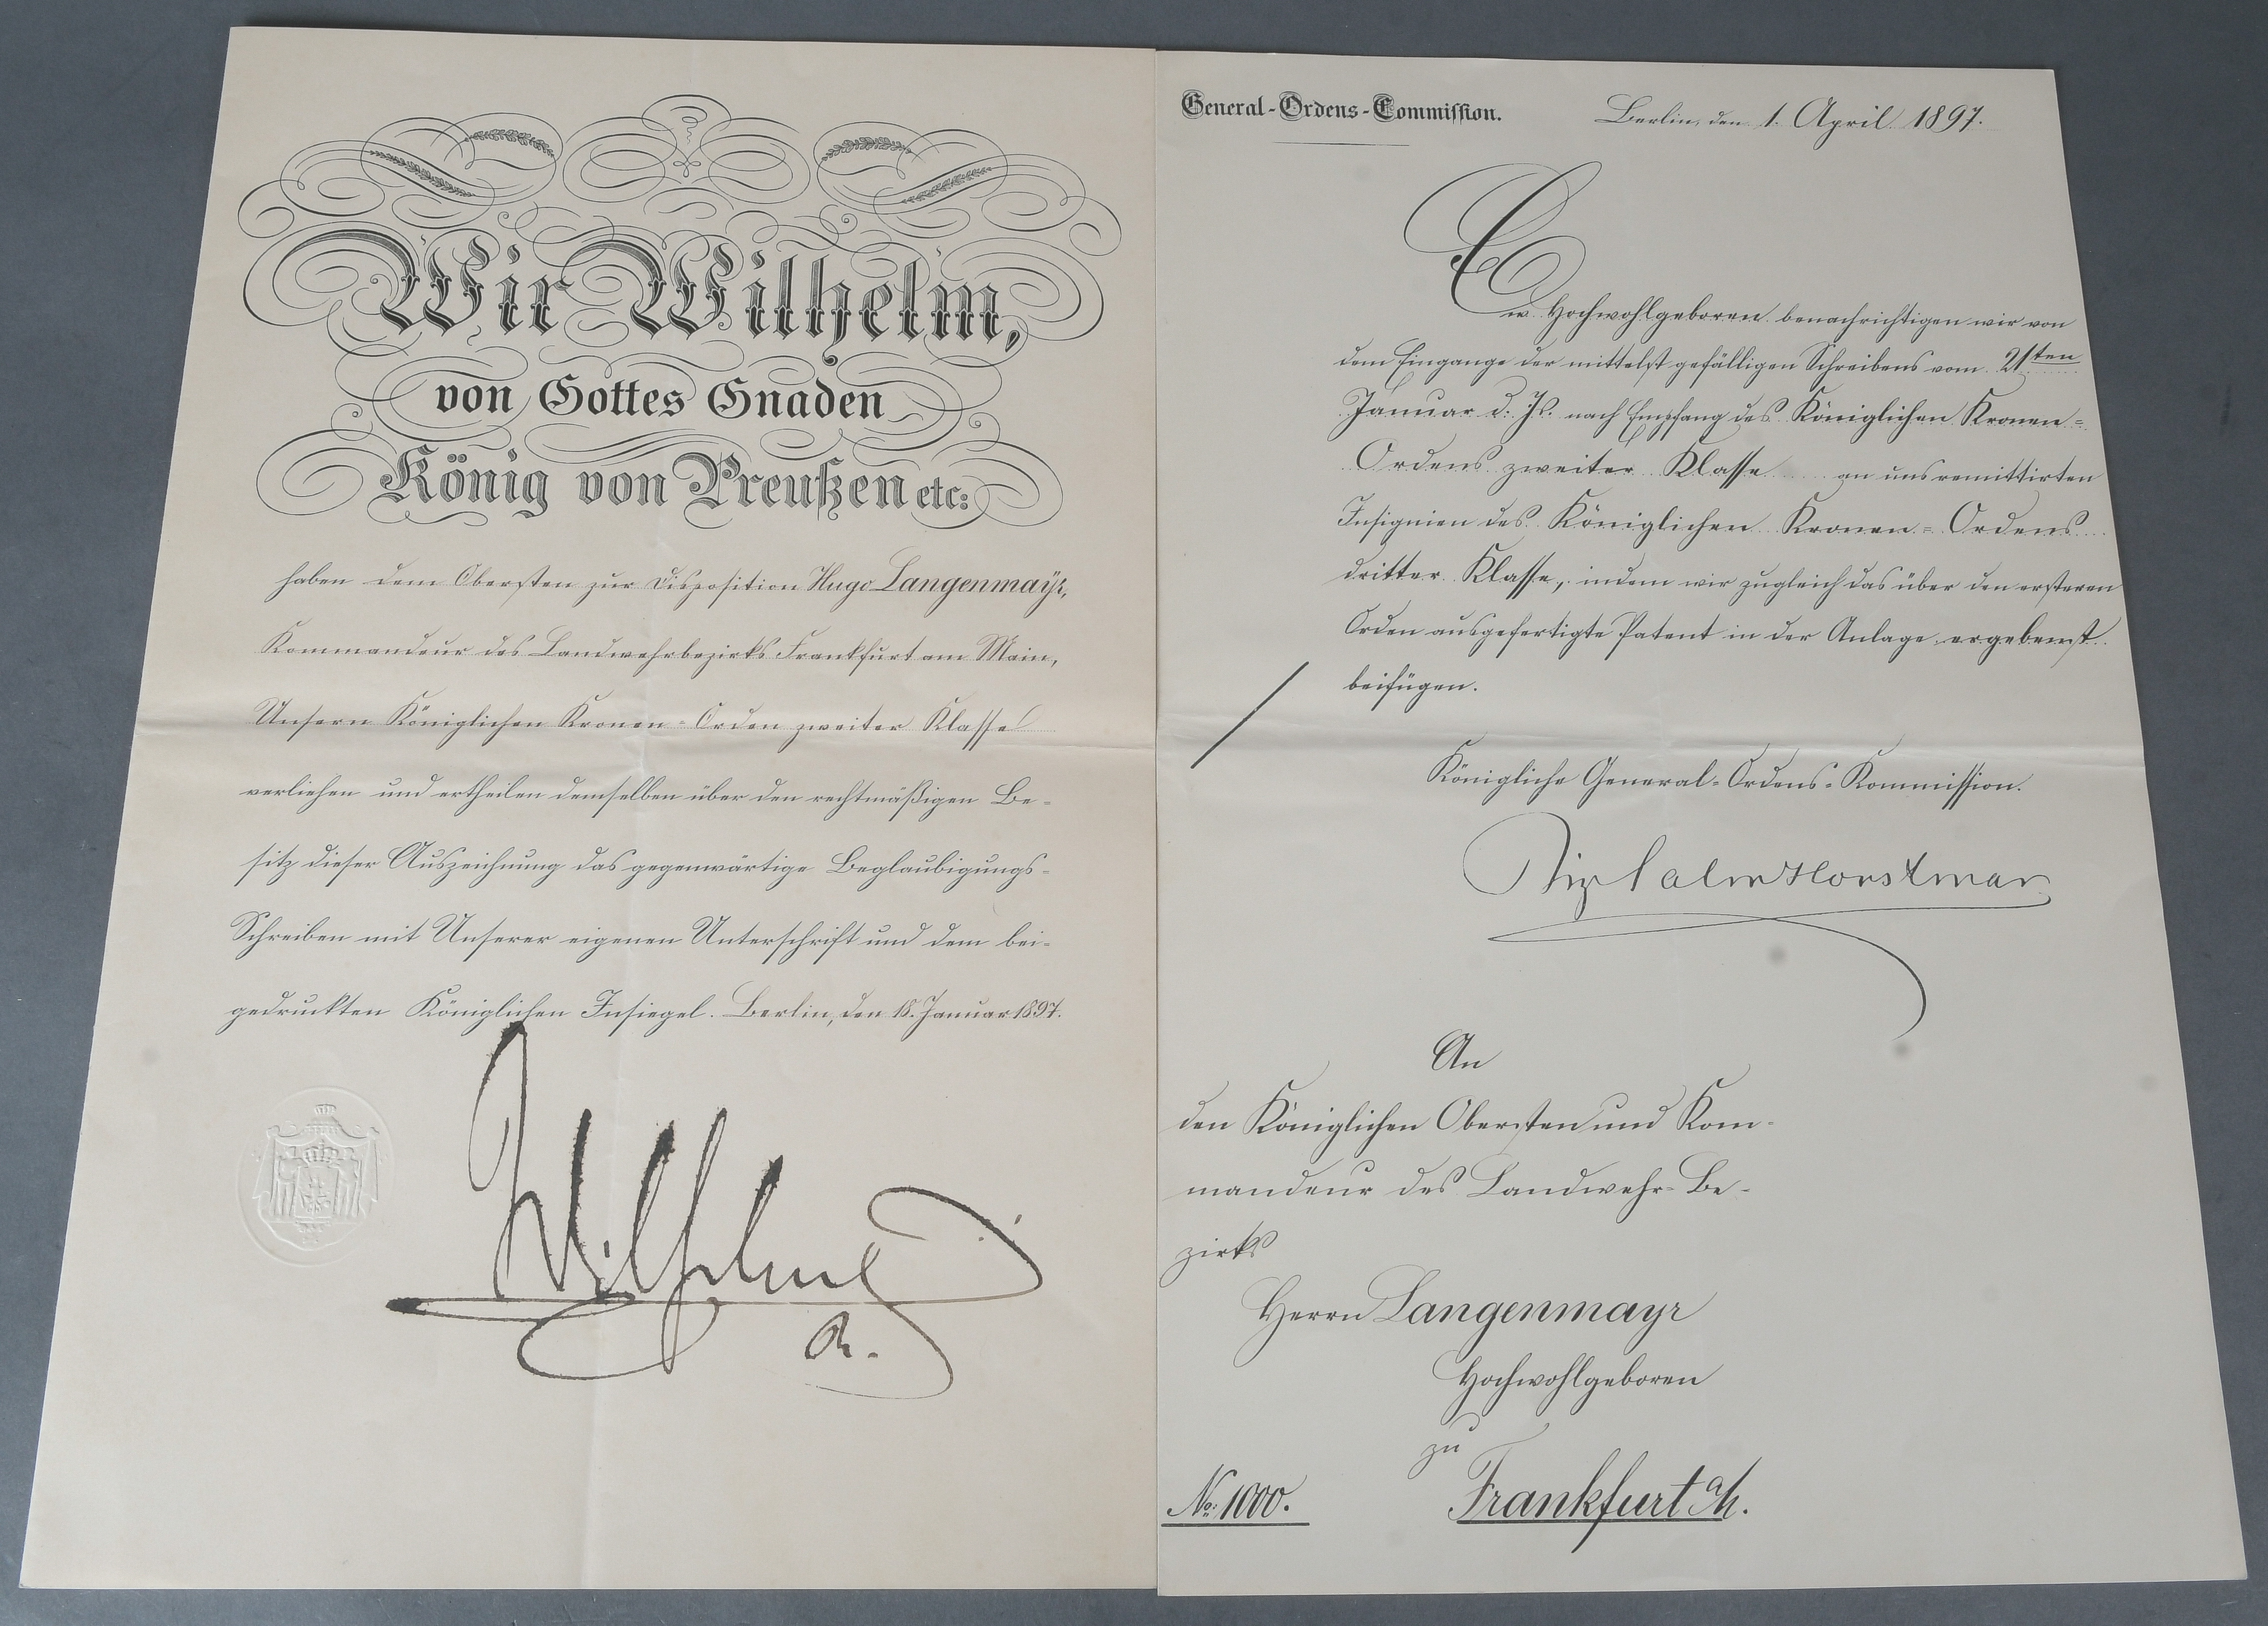 Wir Wilhelm,
von Gottes Gnaden
König von Preußen etc:
haben dem Obersten zur Disposition Hugo Langenmayr,
Kommandeur des Landwehrbezirks Frankfurt am Main,
Unsern Königlichen Kronen-Orden zweiter Klasse
verliehen und ertheilen demselben über den rechtmäßigen Be-
sitz dieser Auszeichnung das gegenwärtige Beglaubigungs-
Schreiben mit Unserer eigenen Unterschrift und dem bei-
gedruckten Königlichen Insiegel. Berlin, den 18. Januar 1897.
Wilhelm
R.
General-Ordens-Commission.
Berlin, den 1. April 1897.
Ew. Hochwohlgeboren benachrichtigen wir von
dem Eingange der mittelst gefälligen Schreibens vom 21ten
Januar d. Js. nach Empfang des Königlichen Kronen-
Ordens zweiter Klasse an uns remittirten
Insignien des Königlichen Kronen-Ordens
dritter Klasse, indem wir zugleich das über den ersteren
Orden ausgefertigte Patent in der Anlage ergebenst
beifügen.
Königliche General-Ordens-Kommission.
An
den Königlichen Obersten und Kom-
mandeur des Landwehr-Be-
zirks
Herrn Langenmayr
Hochwohlgeboren
zu
Frankfurt a/M.
No: 1000.